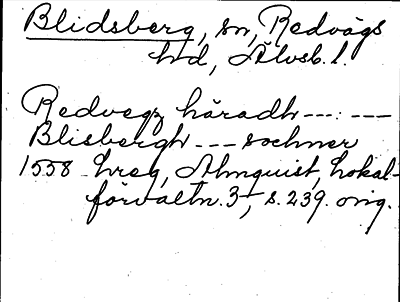 Blidsberg, sn, Redvägs
hd, Älvsb. l.
Redvegz häradh --- : ---
Blisbergh --- sochner
1558 hreg, Almquist, Lokal-
förvaltn. 3, s. 239. orig.